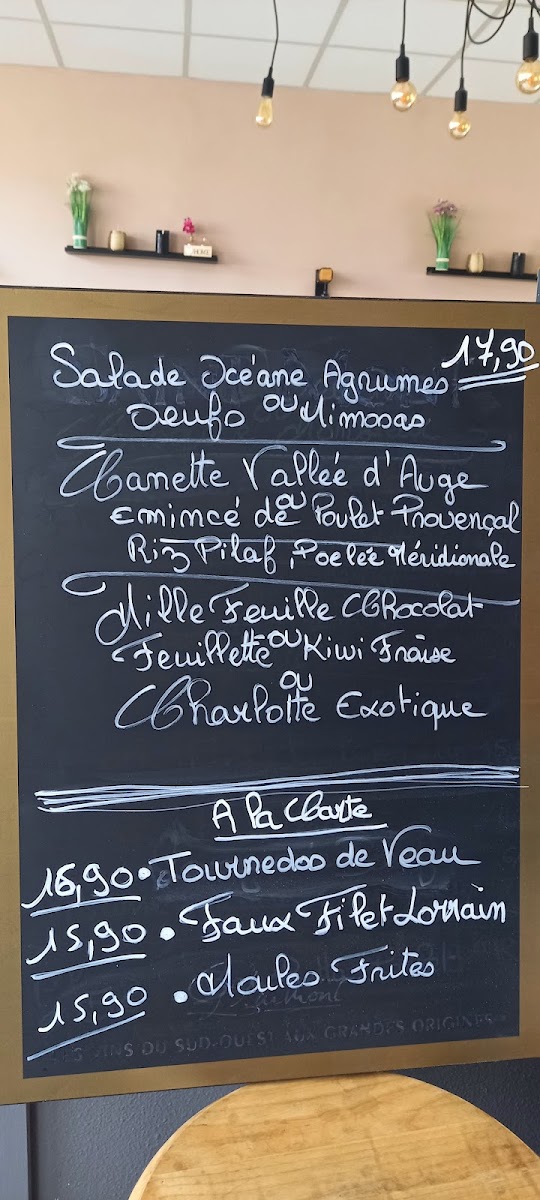 17,90
Salade Océane Agrumes
ou
Oeufs Mimosas
Canette Vallée d'Auge
ou
Emincé de Poulet Provençal
Riz Pilaf, Poelée Méridionale
Mille Feuille CHocolat
ou
Feuilletté Kiwi Fraise
ou
CHarlotte Exotique
A la Carte
16,90 • Tournedos de Veau
15,90 • Faux Filet Lorrain
15,90 • Moules Frites
LES VINS DU SUD-OUEST AUX GRANDES ORIGINES